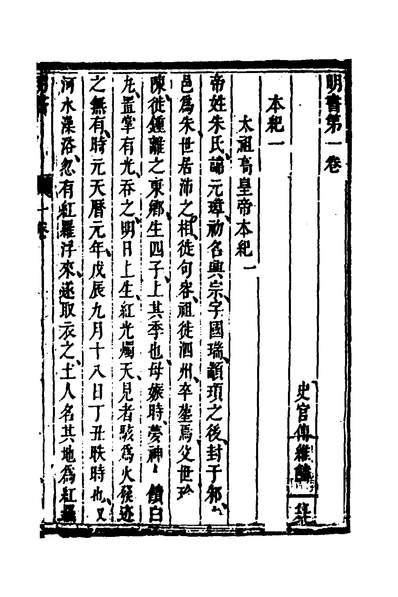 明書第一卷
史官傅維鱗纂
本紀一
太祖高皇帝本紀一
帝姓朱氏諱元璋初名興宗字國瑞顓頊之後封于邾
邑爲朱世居沛之相徙句容祖徙泗州卒塟焉父世珍
陳徙鍾離之東鄉生四子上其季也母娠時夢神饋白
丸置掌有光吞之明日上生紅光燭天見者駭爲火發迹
之無有時元天曆元年戊辰九月十八日丁丑昳時也又
河水澡浴忽有紅羅浮來遂取衣之土人名其地爲紅羅